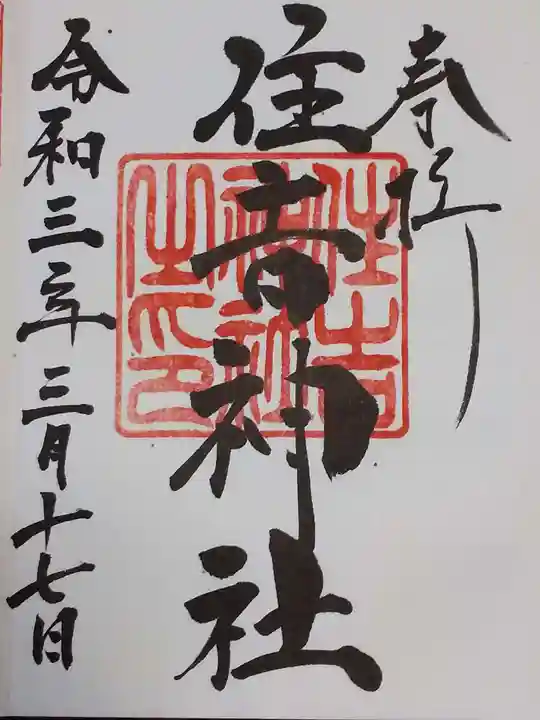 奉拝
住吉神社
住吉
神社
之印
令和三年三月十七日